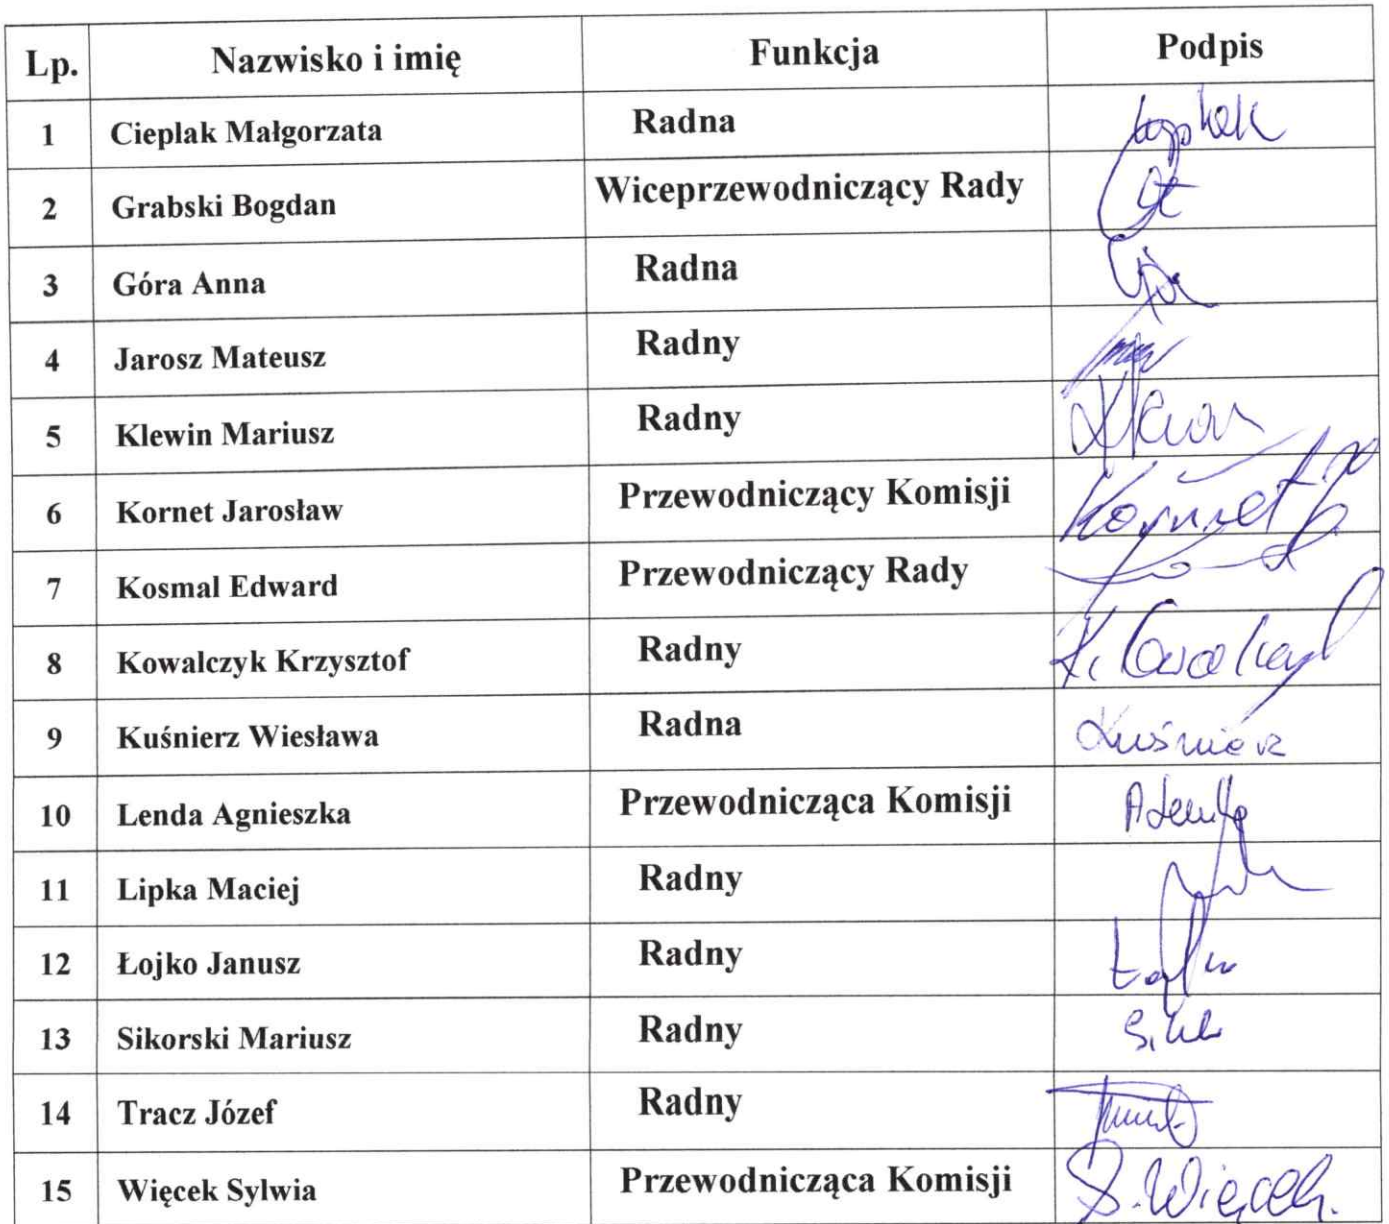 Lp. Nazwisko i imię Funkcja Podpis
1 Cieplak Małgorzata Radna
2 Grabski Bogdan Wiceprzewodniczący Rady
3 Góra Anna Radna
4 Jarosz Mateusz Radny
5 Klewin Mariusz Radny
6 Kornet Jarosław Przewodniczący Komisji Kornet
7 Kosmal Edward Przewodniczący Rady
8 Kowalczyk Krzysztof Radny
9 Kuśnierz Wiesława Radna Kuśnierz
10 Lenda Agnieszka Przewodnicząca Komisji
11 Lipka Maciej Radny
12 Łojko Janusz Radny
13 Sikorski Mariusz Radny
14 Tracz Józef Radny
15 Więcek Sylwia Przewodnicząca Komisji S. Więcek